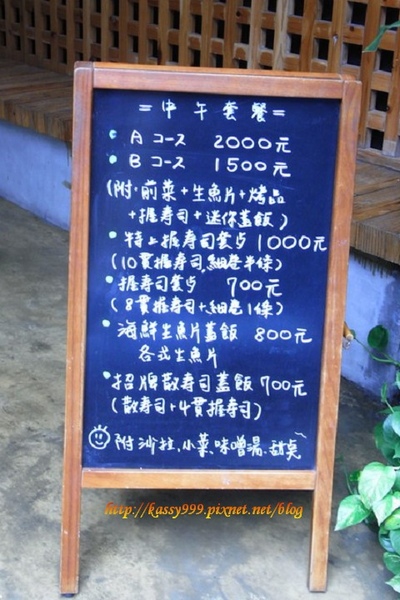 =中午套餐=
• A コース 2000元
• B コース 1500元
(附.前菜+生魚片+烤品
+握寿司+迷你蓋飯)
• 特上握寿司套点 1000元
(10貫握寿司,細卷半條)
• 握寿司套点 700元
(8貫握寿司+細卷1條)
• 海鮮生魚片蓋飯 800元
各式生魚片
• 招牌散寿司蓋飯 700元
(散寿司+4貫握寿司)
附沙拉.小菜.味噌湯.甜点
http://kassy999.pixnet.net/blog